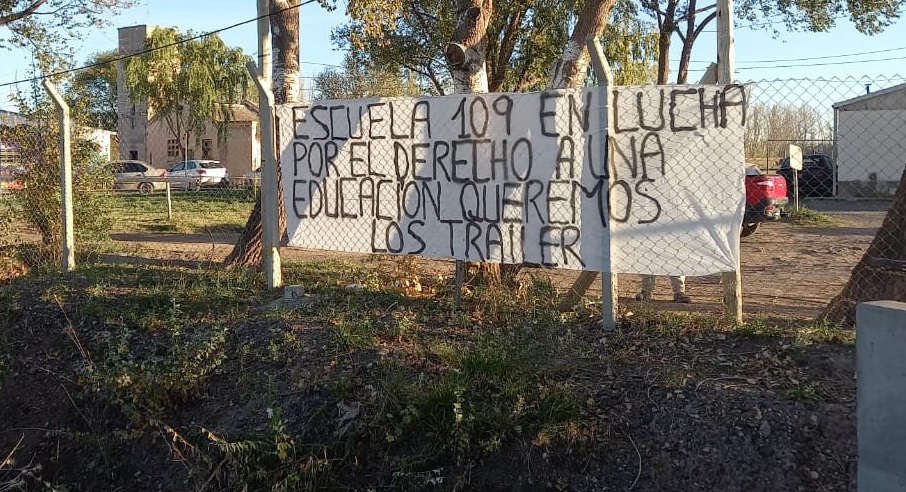 ESCUELA 109 EN LUCHA
POR EL DERECHO A UNA
EDUCACION_QUEREMOS
LOS TRAILER